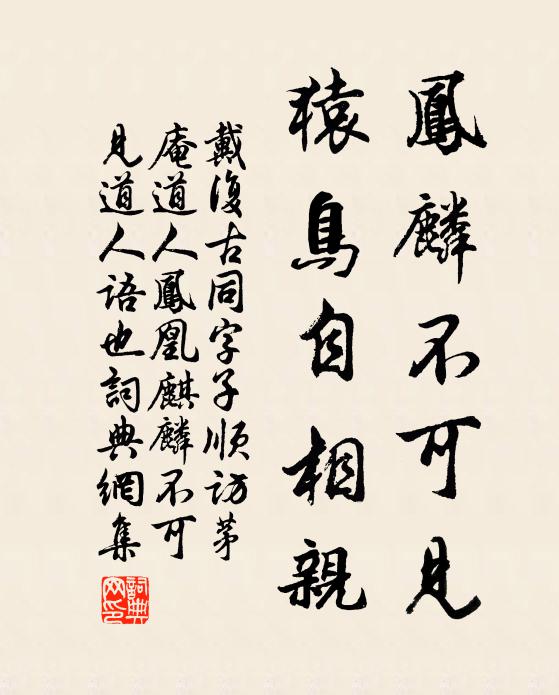 鳳麟不可見
猿鳥自相親
戴復古同字子順訪茅
庵道人鳳凰麒麟不可
見道人語也詞典網集
詞典网印